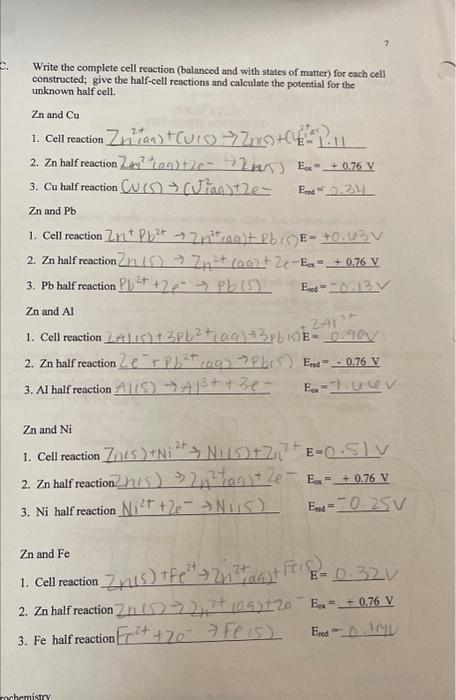 7
C. Write the complete cell reaction (balanced and with states of matter) for each cell
constructed; give the half-cell reactions and calculate the potential for the
unknown half cell.
Zn and Cu
1. Cell reaction Zn²⁺(aq)+Cu(s)→Zn(s)+Cu²⁺(aq) E= 1.11
2. Zn half reaction Zn²⁺(aq)+2e-→Zn(s) Eox= + 0.76 V
3. Cu half reaction Cu(s)→Cu²(aq)+2e- Ered=
Zn and Pb
1. Cell reaction Zn+Pb²⁺→Zn²⁺(aq)+Pb(s) E= +0.63V
2. Zn half reaction Zn(s)→Zn²⁺(aq)+2e- Eox= + 0.76 V
3. Pb half reaction Pb²⁺+2e-→Pb(s) Ered= -0.13V
Zn and Al
1. Cell reaction 2Al(s)+3Pb²⁺(aq)→3Pb(s) +2Al³⁺ E= 0.90V
2. Zn half reaction 2e-+Pb²⁺(aq)→Pb(s) Ered= - 0.76 V
3. Al half reaction Al(s)→Al³⁺+3e- Eox=
Zn and Ni
1. Cell reaction Zn(s)+Ni²⁺→Ni(s)+Zn²⁺ E=0.51V
2. Zn half reaction Zn(s)→Zn²⁺(aq)+2e- Eox= + 0.76 V
3. Ni half reaction Ni²⁺+2e-→Ni(s) Ered= -0.25V
Zn and Fe
1. Cell reaction Zn(s)+Fe²⁺→Zn²⁺(aq)+Fe(s) E= 0.32V
2. Zn half reaction Zn(s)→Zn²⁺(aq)+2e- Eox= + 0.76 V
3. Fe half reaction Fe²⁺+2e-→Fe(s) Ered=